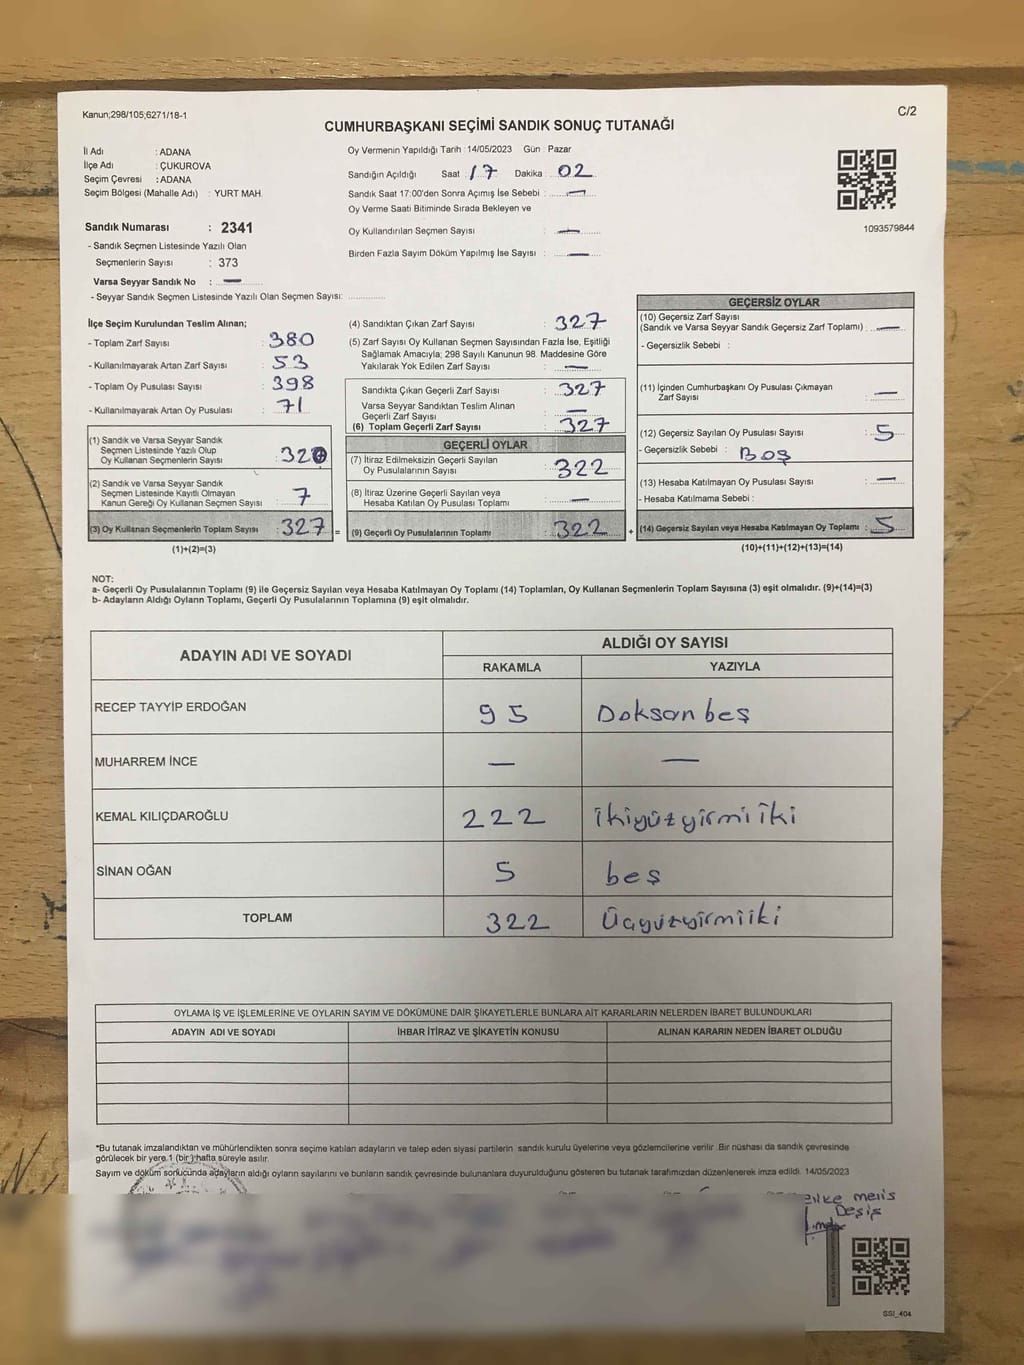 Kanun;298/105;6271/18-1
C/2
CUMHURBAŞKANI SEÇİMİ SANDIK SONUÇ TUTANAĞI
İl Adı : ADANA
İlçe Adı : ÇUKUROVA
Seçim Çevresi : ADANA
Seçim Bölgesi (Mahalle Adı) : YURT MAH.
Sandık Numarası : 2341
- Sandık Seçmen Listesinde Yazılı Olan
Seçmenlerin Sayısı : 373
Varsa Seyyar Sandık No : —
- Seyyar Sandık Seçmen Listesinde Yazılı Olan Seçmen Sayısı: ............
Oy Vermenin Yapıldığı Tarih : 14/05/2023 Gün : Pazar
Sandığın Açıldığı Saat : 17 Dakika : 02
Sandık Saat 17:00'den Sonra Açımış İse Sebebi : —
Oy Verme Saati Bitiminde Sırada Bekleyen ve
Oy Kullandırılan Seçmen Sayısı : —
Birden Fazla Sayım Döküm Yapılmış İse Sayısı : —
1093579844
İlçe Seçim Kurulundan Teslim Alınan;
- Toplam Zarf Sayısı : 380
- Kullanılmayarak Artan Zarf Sayısı : 53
- Toplam Oy Pusulası Sayısı : 398
- Kullanılmayarak Artan Oy Pusulası : 71
(1) Sandık ve Varsa Seyyar Sandık
Seçmen Listesinde Yazılı Olup
Oy Kullanan Seçmenlerin Sayısı : 320
(2) Sandık ve Varsa Seyyar Sandık
Seçmen Listesinde Kayıtlı Olmayan
Kanun Gereği Oy Kullanan Seçmen Sayısı : 7
(3) Oy Kullanan Seçmenlerin Toplam Sayısı : 327 =
(1)+(2)=(3)
(4) Sandıktan Çıkan Zarf Sayısı : 327
(5) Zarf Sayısı Oy Kullanan Seçmen Sayısından Fazla İse, Eşitliği
Sağlamak Amacıyla; 298 Sayılı Kanunun 98. Maddesine Göre
Yakılarak Yok Edilen Zarf Sayısı : —
Sandıkta Çıkan Geçerli Zarf Sayısı : 327
Varsa Seyyar Sandıktan Teslim Alınan
Geçerli Zarf Sayısı : —
(6) Toplam Geçerli Zarf Sayısı : 327
GEÇERLİ OYLAR
(7) İtiraz Edilmeksizin Geçerli Sayılan
Oy Pusulalarının Sayısı : 322
(8) İtiraz Üzerine Geçerli Sayılan veya
Hesaba Katılan Oy Pusulası Toplamı : —
(9) Geçerli Oy Pusulalarının Toplamı : 322 +
GEÇERSİZ OYLAR
(10) Geçersiz Zarf Sayısı
(Sandık ve Varsa Seyyar Sandık Geçersiz Zarf Toplamı) : —
- Geçersizlik Sebebi :
(11) İçinden Cumhurbaşkanı Oy Pusulası Çıkmayan
Zarf Sayısı : —
(12) Geçersiz Sayılan Oy Pusulası Sayısı : 5
- Geçersizlik Sebebi : Boş
(13) Hesaba Katılmayan Oy Pusulası Sayısı : —
- Hesaba Katılmama Sebebi :
(14) Geçersiz Sayılan veya Hesaba Katılmayan Oy Toplamı : 5
(10)+(11)+(12)+(13)=(14)
NOT:
a- Geçerli Oy Pusulalarının Toplamı (9) ile Geçersiz Sayılan veya Hesaba Katılmayan Oy Toplamı (14) Toplamları, Oy Kullanan Seçmenlerin Toplam Sayısına (3) eşit olmalıdır. (9)+(14)=(3)
b- Adayların Aldığı Oyların Toplamı, Geçerli Oy Pusulalarının Toplamına (9) eşit olmalıdır.
ADAYIN ADI VE SOYADI
ALDIĞI OY SAYISI
RAKAMLA YAZIYLA
RECEP TAYYİP ERDOĞAN 95 Doksan beş
MUHARREM İNCE — —
KEMAL KILIÇDAROĞLU 222 ikiyüzyirmi iki
SİNAN OĞAN 5 beş
TOPLAM 322 Üçyüzyirmiiki
OYLAMA İŞ VE İŞLEMLERİNE VE OYLARIN SAYIM VE DÖKÜMÜNE DAİR ŞİKAYETLERLE BUNLARA AİT KARARLARIN NELERDEN İBARET BULUNDUKLARI
ADAYIN ADI VE SOYADI İHBAR İTİRAZ VE ŞİKAYETİN KONUSU ALINAN KARARIN NEDEN İBARET OLDUĞU
*Bu tutanak imzalandıktan ve mühürlendikten sonra seçime katılan adayların ve talep eden siyasi partilerin sandık kurulu üyelerine veya gözlemcilerine verilir. Bir nüshası da sandık çevresinde
görülecek bir yere 1 (bir) hafta süreyle asılır.
Sayım ve döküm sonucunda adayların aldığı oyların sayılarını ve bunların sandık çevresinde bulunanlara duyurulduğunu gösteren bu tutanak tarafımızdan düzenlenerek imza edildi. 14/05/2023
melis
SSI_404